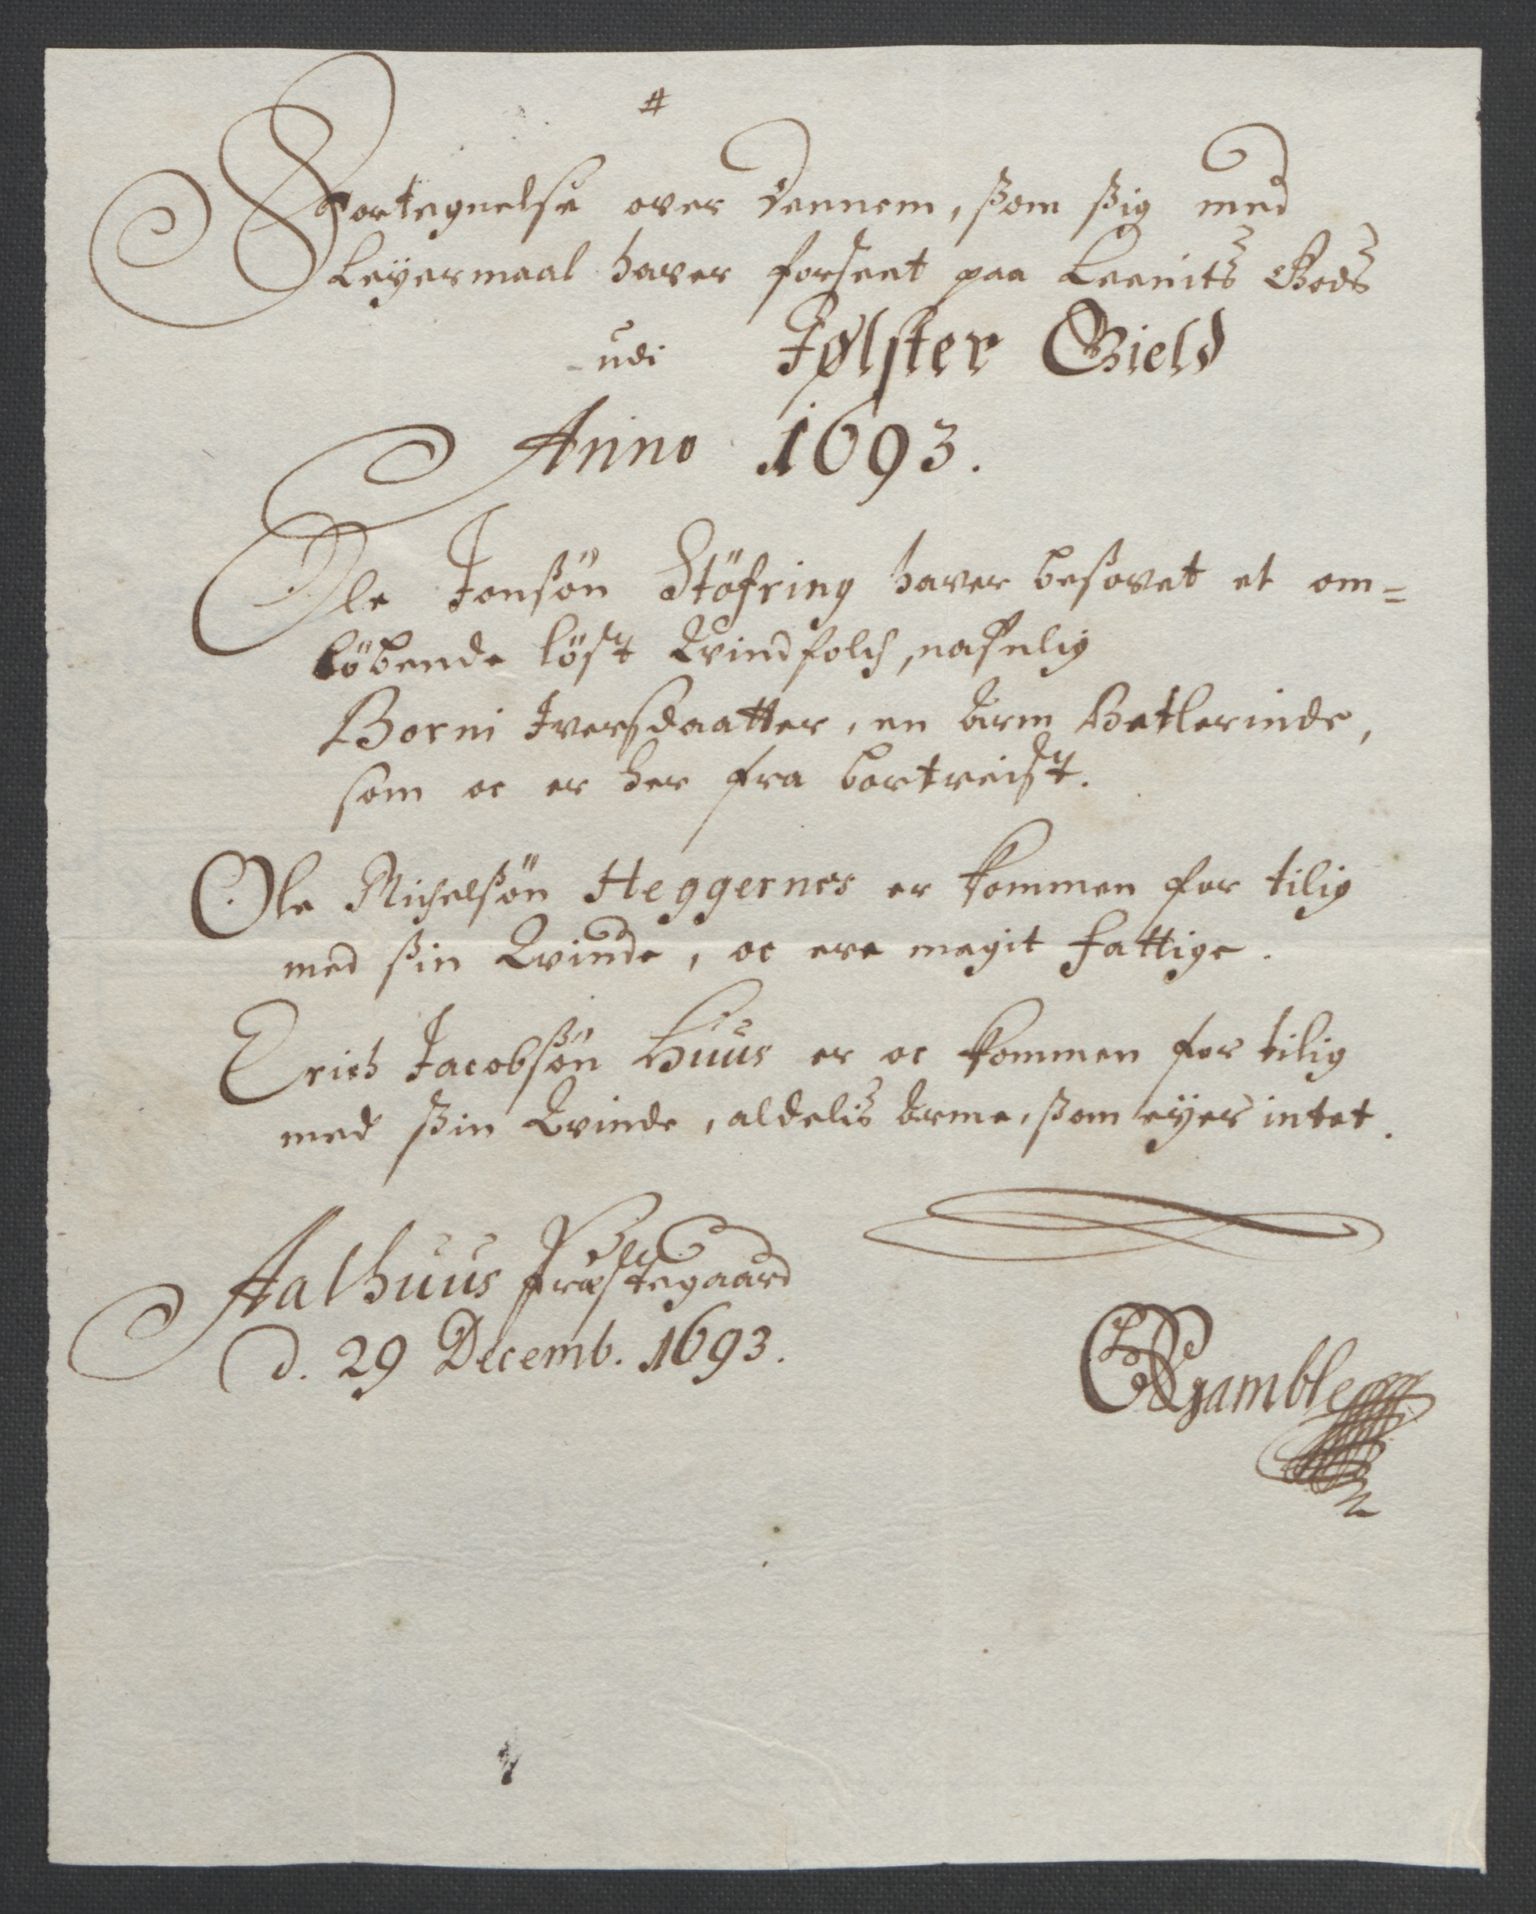 #
Fortegnelse over dennem, som sig med
Leyermaal haver forseet paa Leenits Gods
udi Jølster Gield
Anno 1693.
Ole Jonsön Stöfring haver besovet et om=
löbende löst Qvindfolch, nafnlig
Borni Iversdaatter, en Arm Betlerinde,
som oc er her fra bortreist.
Ole Michelsön Heggernes er kommen for tilig
med sin Qvinde, oc ere megit fattige.
Erich Jacobsön Huus er oc kommen for tilig
med sin Qvinde, aldelis Arme, som eyer intet.
Aalhuus Præstegaard
d. 29 Decemb. 1693.
Gamble